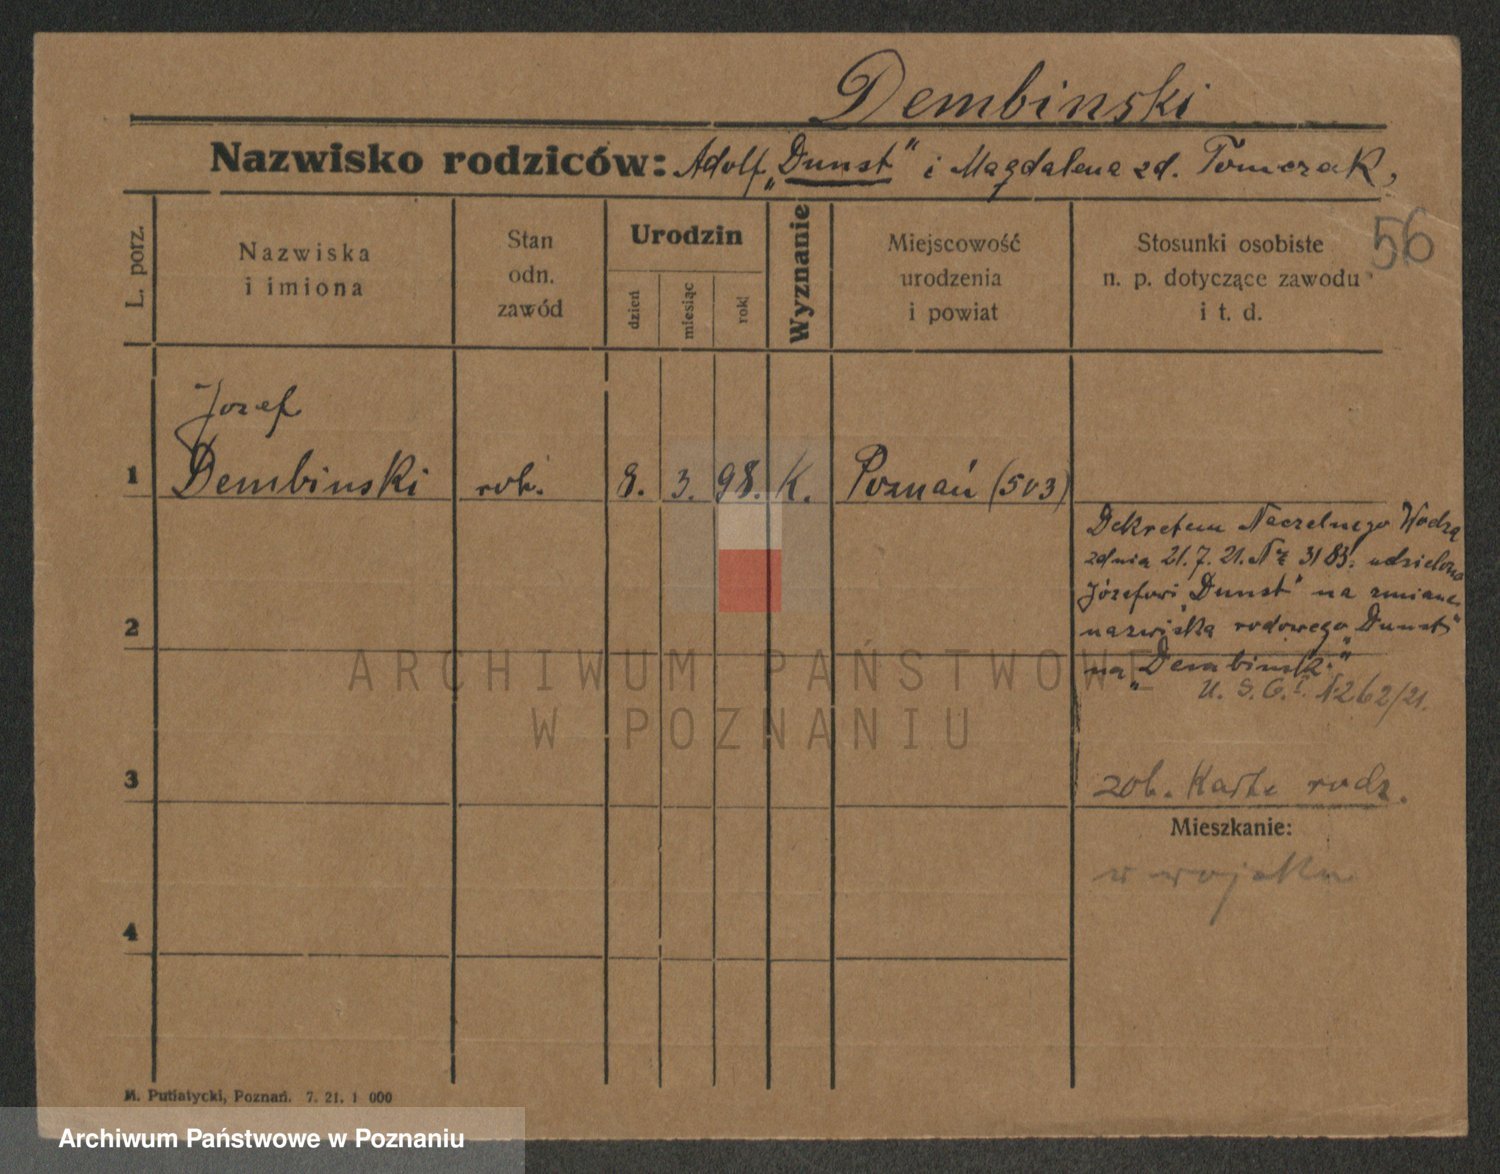 Dembinski
Nazwisko rodziców: Adolf „Dunst" i Magdalena zd. Tomczak,
56
L. porz.
Nazwiska
i imiona
Stan
odn.
zawód
Urodzin
dzień
miesiąc
rok
Wyznanie
Miejscowość
urodzenia
i powiat
Stosunki osobiste
n. p. dotyczące zawodu
i t. d.
Józef
1 Dembinski rob. 8. 3. 98. K. Poznań (503)
Dekretem Naczelnego Wodza
z dnia 21. 7. 21. Nr 3183. udzielono
Józefowi „Dunst" na zmianę
nazwiska rodowego „Dunst"
na „Dembinski"
U. S. G. I. N 262/21.
2
ARCHIWUM PAŃSTWOWE
W POZNANIU
3
zob. Karta rodz.
Mieszkanie:
w wojsku
4
M. Putiatycki, Poznań. 7. 21. 1 000
Archiwum Państwowe w Poznaniu